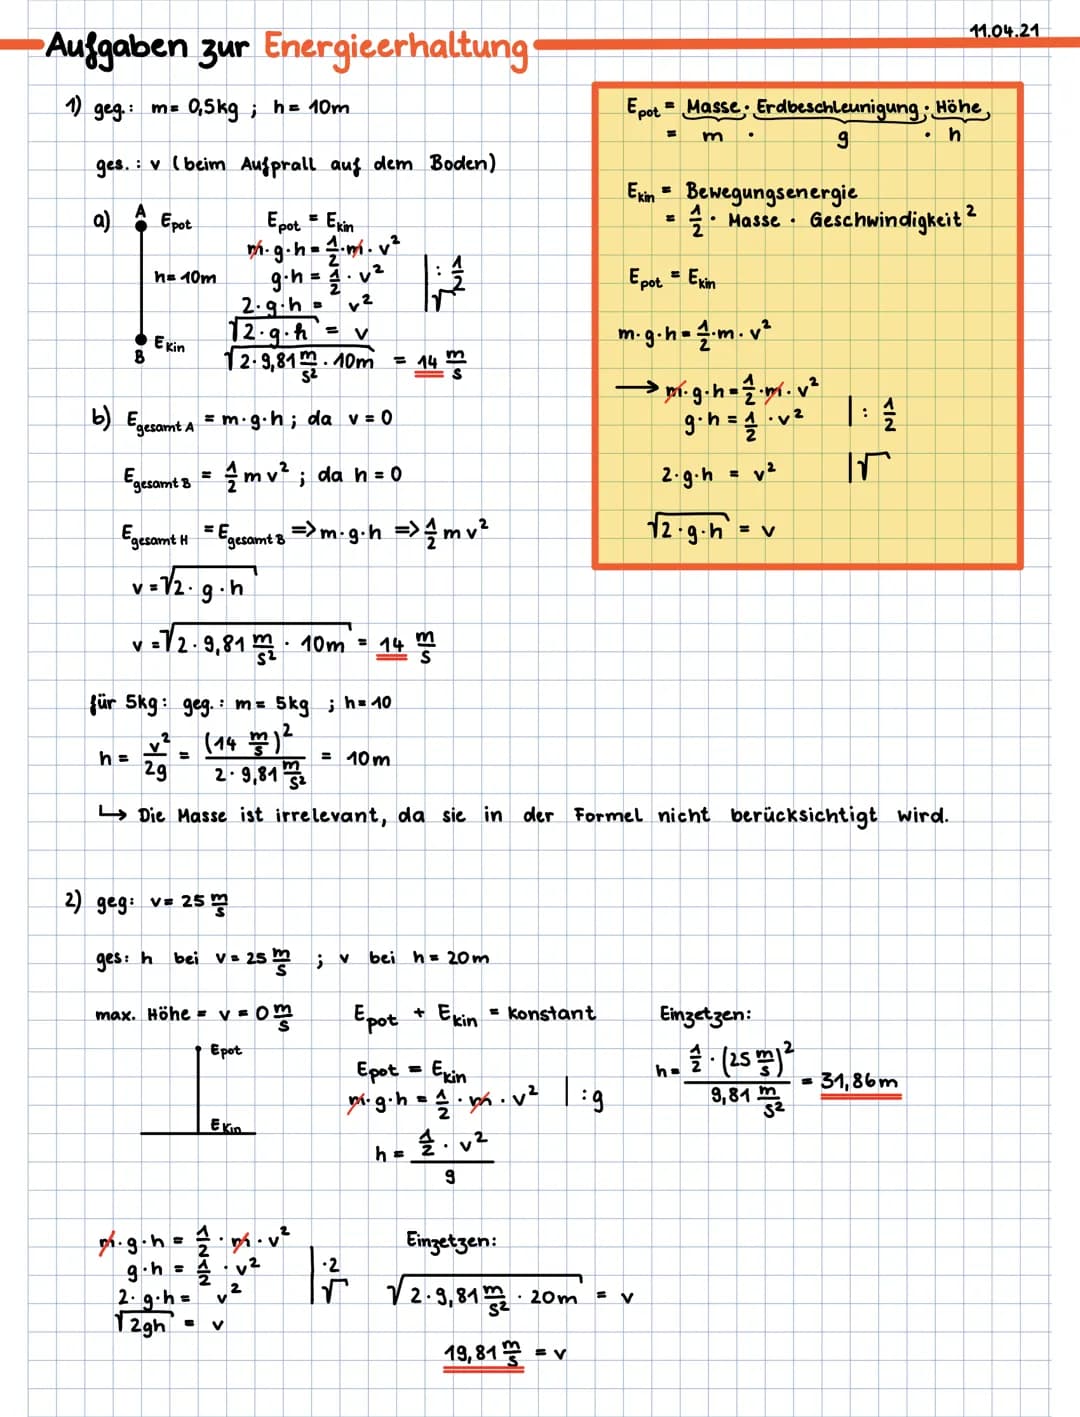 11.04.21
Aufgaben zur Energieerhaltung
1) geg.: m= 0,5kg ; h= 10m
ges. : v (beim Aufprall auf dem Boden)
a) A Epot
h= 10m
B Ekin
Epot = Ekin
m·g·h = 1/2·m·v²
g·h = 1/2·v² |: 1/2
2·g·h = v² |√
√2·g·h = v
√2·9,81 m/s² · 10m = 14 m/s
b) Egesamt A = m·g·h ; da v = 0
Egesamt B = 1/2 m v² ; da h = 0
Egesamt H = Egesamt B => m·g·h => 1/2 m v²
v = √2·g·h
v = √2·9,81 m/s² · 10m = 14 m/s
für 5kg: geg.: m= 5kg ; h= 10
h = v²/2g = (14 m/s)²/2·9,81 m/s² = 10m
↳ Die Masse ist irrelevant, da sie in der Formel nicht berücksichtigt wird.
Epot = Masse · Erdbeschleunigung · Höhe
= m · g · h
Ekin = Bewegungsenergie
= 1/2 · Masse · Geschwindigkeit²
Epot = Ekin
m·g·h = 1/2·m·v²
→ m·g·h = 1/2·m·v²
g·h = 1/2·v² |: 1/2
2·g·h = v² |√
√2·g·h = v
2) geg: v= 25 m/s
ges: h bei v= 25 m/s ; v bei h= 20m
max. Höhe = v = 0 m/s
Epot
Ekin
Epot + Ekin = konstant
Epot = Ekin
m·g·h = 1/2·m·v² |:g
h = 1/2·v²/g
Einzetzen:
h= 1/2·(25 m/s)²/9,81 m/s² = 31,86m
m·g·h = 1/2·m·v²
g·h = 1/2·v² |·2
2·g·h = v² |√
√2gh = v
Einzetzen:
√2·9,81 m/s² · 20m = v
19,81 m/s = v